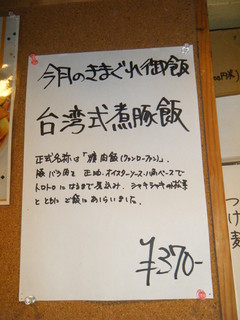 今月のきまぐれ御飯
台湾式煮豚飯
正式名称は「爌肉飯(クァンローファン)」。
豚バラ肉を醤油、オイスターソース、八角ベースで
トロトロになるまで煮込み、シャキシャキの
とともにご飯にあしらいました。
¥370-
つけ
麺